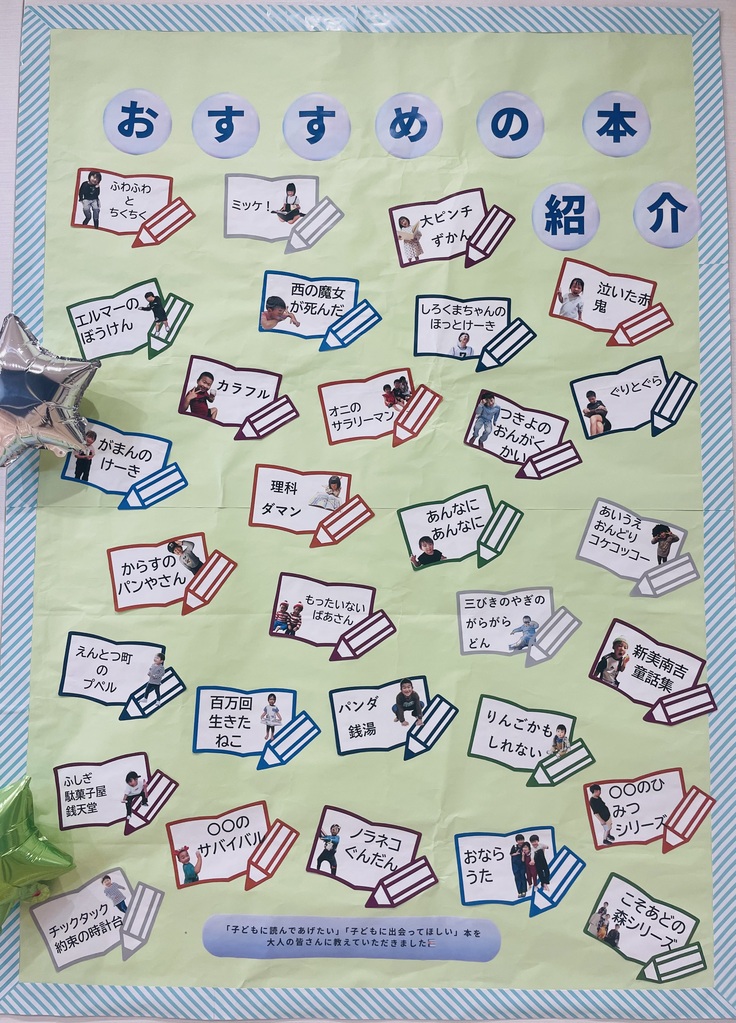 おすすめの本
紹介
ふわふわ
と
ちくちく
ミッケ！
大ピンチ
ずかん
エルマーの
ぼうけん
西の魔女
が死んだ
しろくまちゃんの
ほっとけーき
泣いた赤
鬼
カラフル
オニの
サラリーマン
つきよの
おんがく
かい
ぐりとぐら
がまんの
けーき
理科
ダマン
あんなに
あんなに
あいうえ
おんどり
コケコッコー
からすの
パンやさん
もったいない
ばあさん
三びきのやぎの
がらがら
どん
えんとつ町
の
プペル
新美南吉
童話集
百万回
生きた
ねこ
パンダ
銭湯
りんごかも
しれない
ふしぎ
駄菓子屋
銭天堂
〇〇のひ
みつ
シリーズ
〇〇の
サバイバル
ノラネコ
ぐんだん
おなら
うた
チックタック
約束の時計台
こそあどの
森シリーズ
「子どもに読んであげたい」「子どもに出会ってほしい」本を
大人の皆さんに教えていただきました